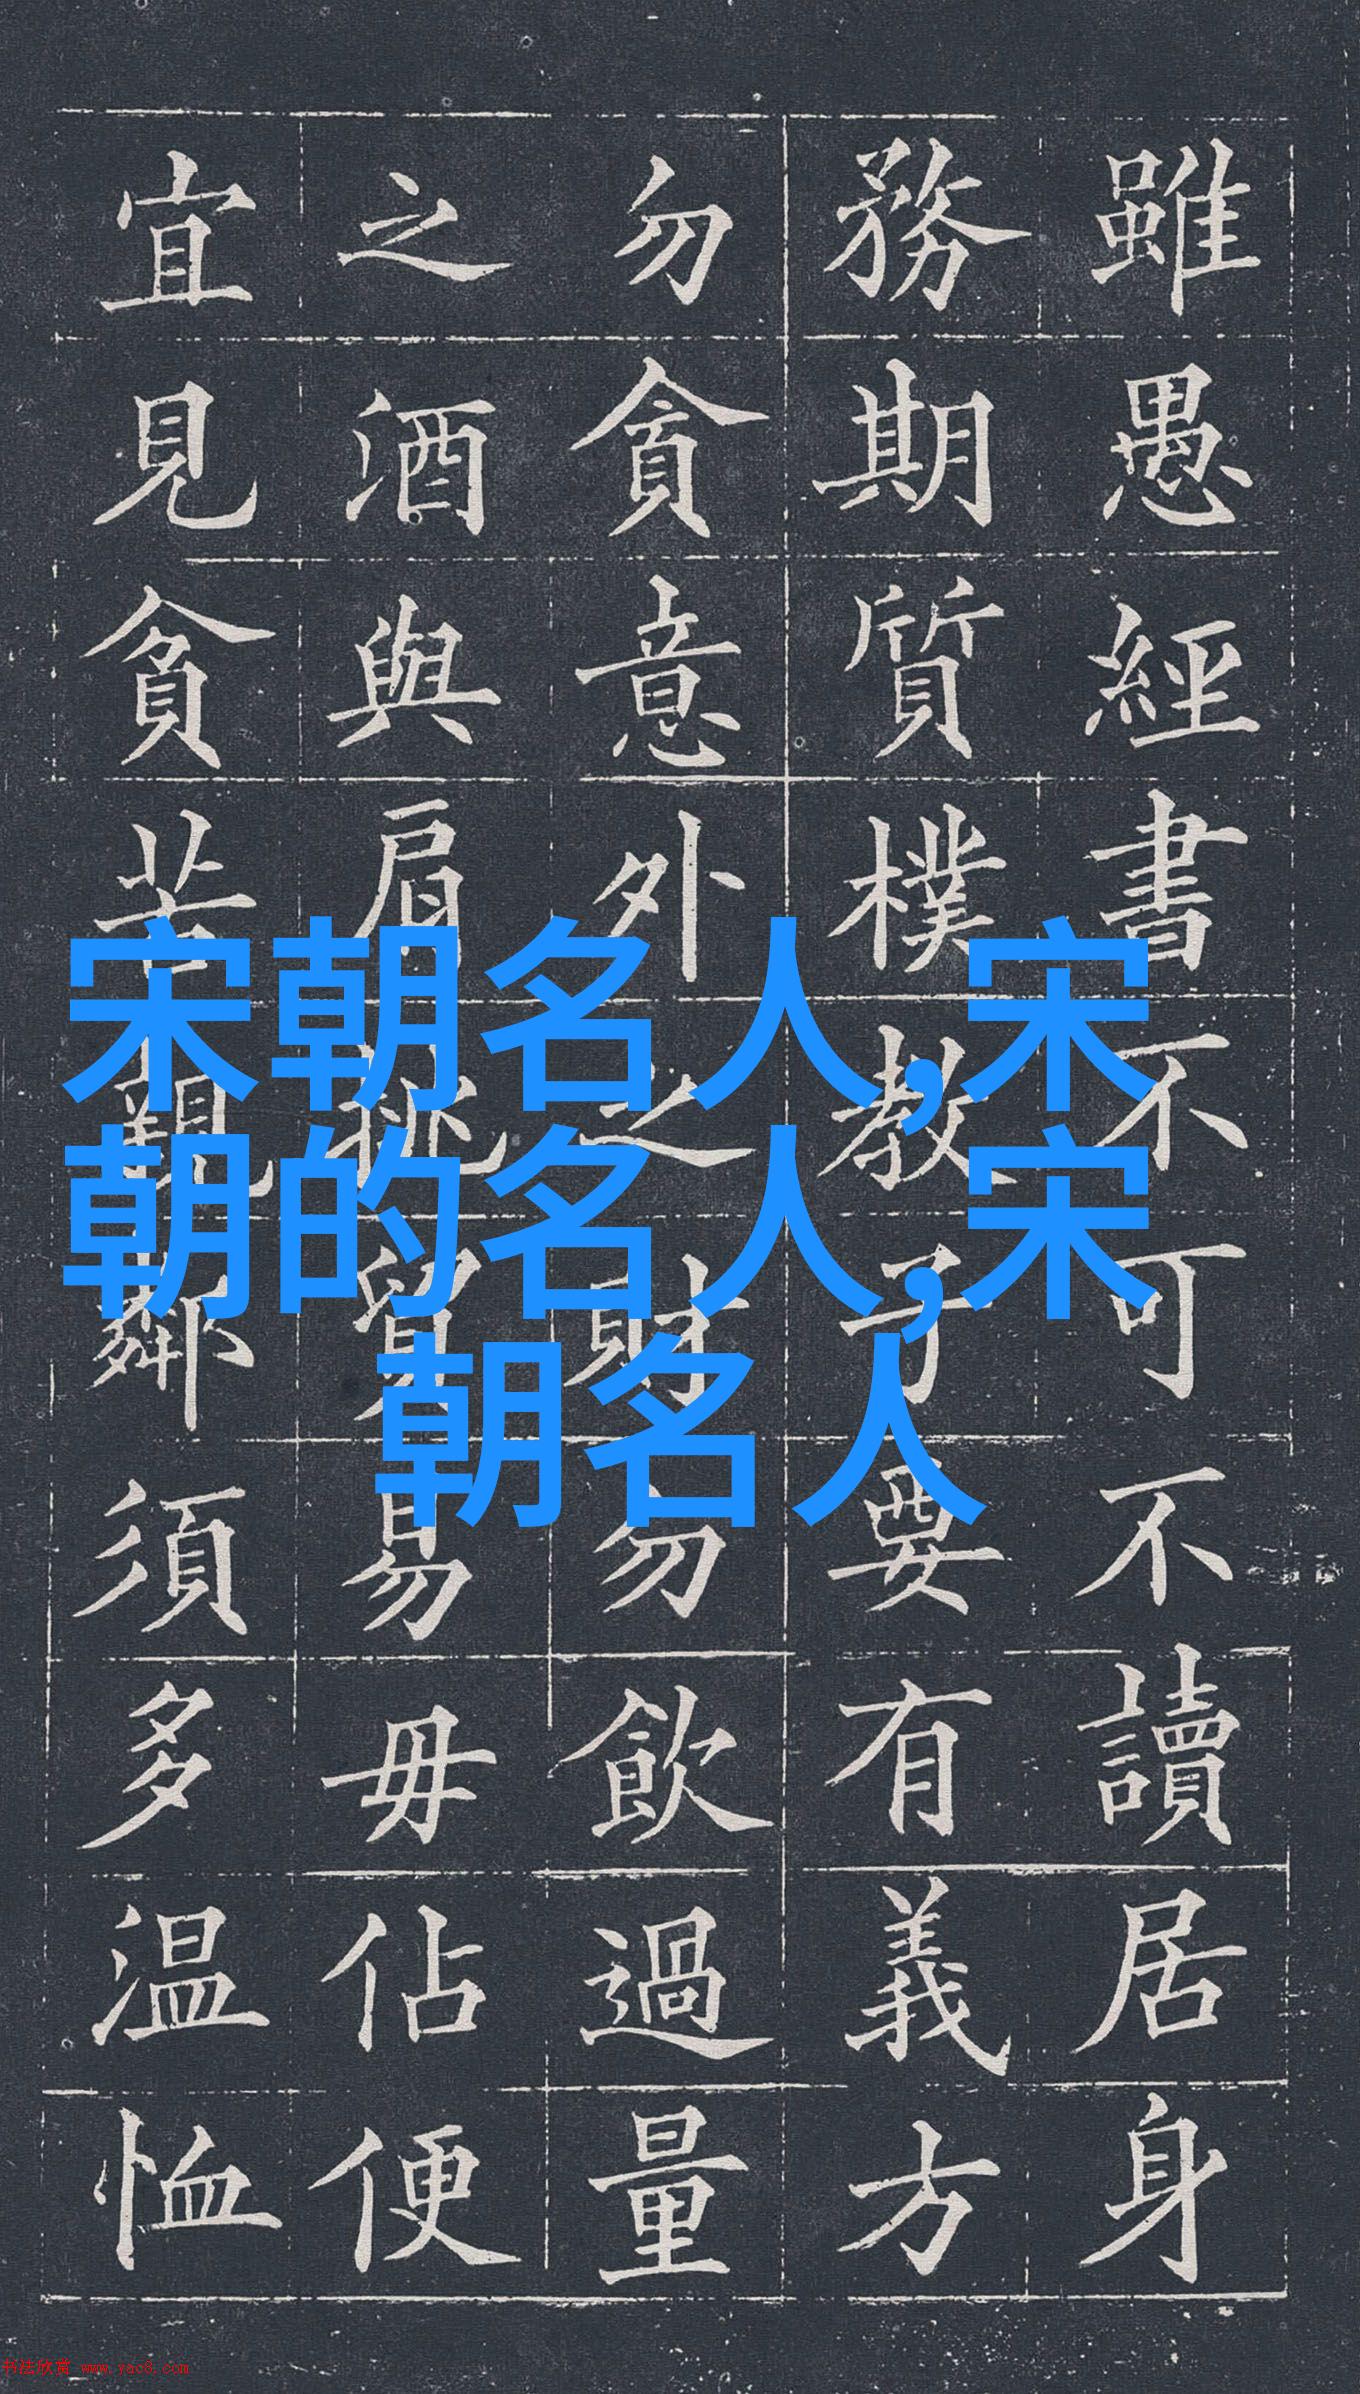 雖愚經書不可不讀居身
務期質樸教子要有義方
勿貪意外之財勿飲過量
之酒與肩挑貿易毋佔便
宜見貧苦親鄰須多温恤
宋朝名人,宋
朝的名人,宋
朝名人
书法欣赏 www.yac8.com